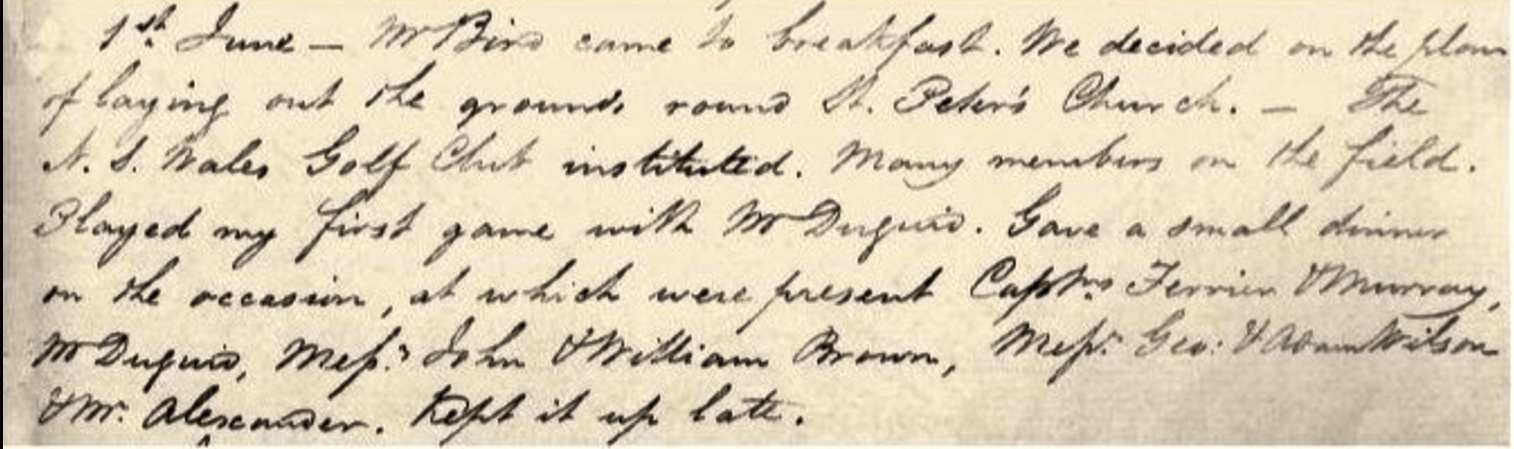 1st. June – Mr Bird came to breakfast. We decided on the plan
of laying out the grounds round St. Peter's Church. – The
N. S. Wales Golf Club instituted. Many members on the field.
Played my first game with Mr Duguid. Gave a small dinner
on the occasion, at which were present Captns Ferrier & Murray,
Mr Duguid, Messrs John & William Brown, Messrs Geo: & Adam Wilson
& Mr. Alexander. Kept it up late.